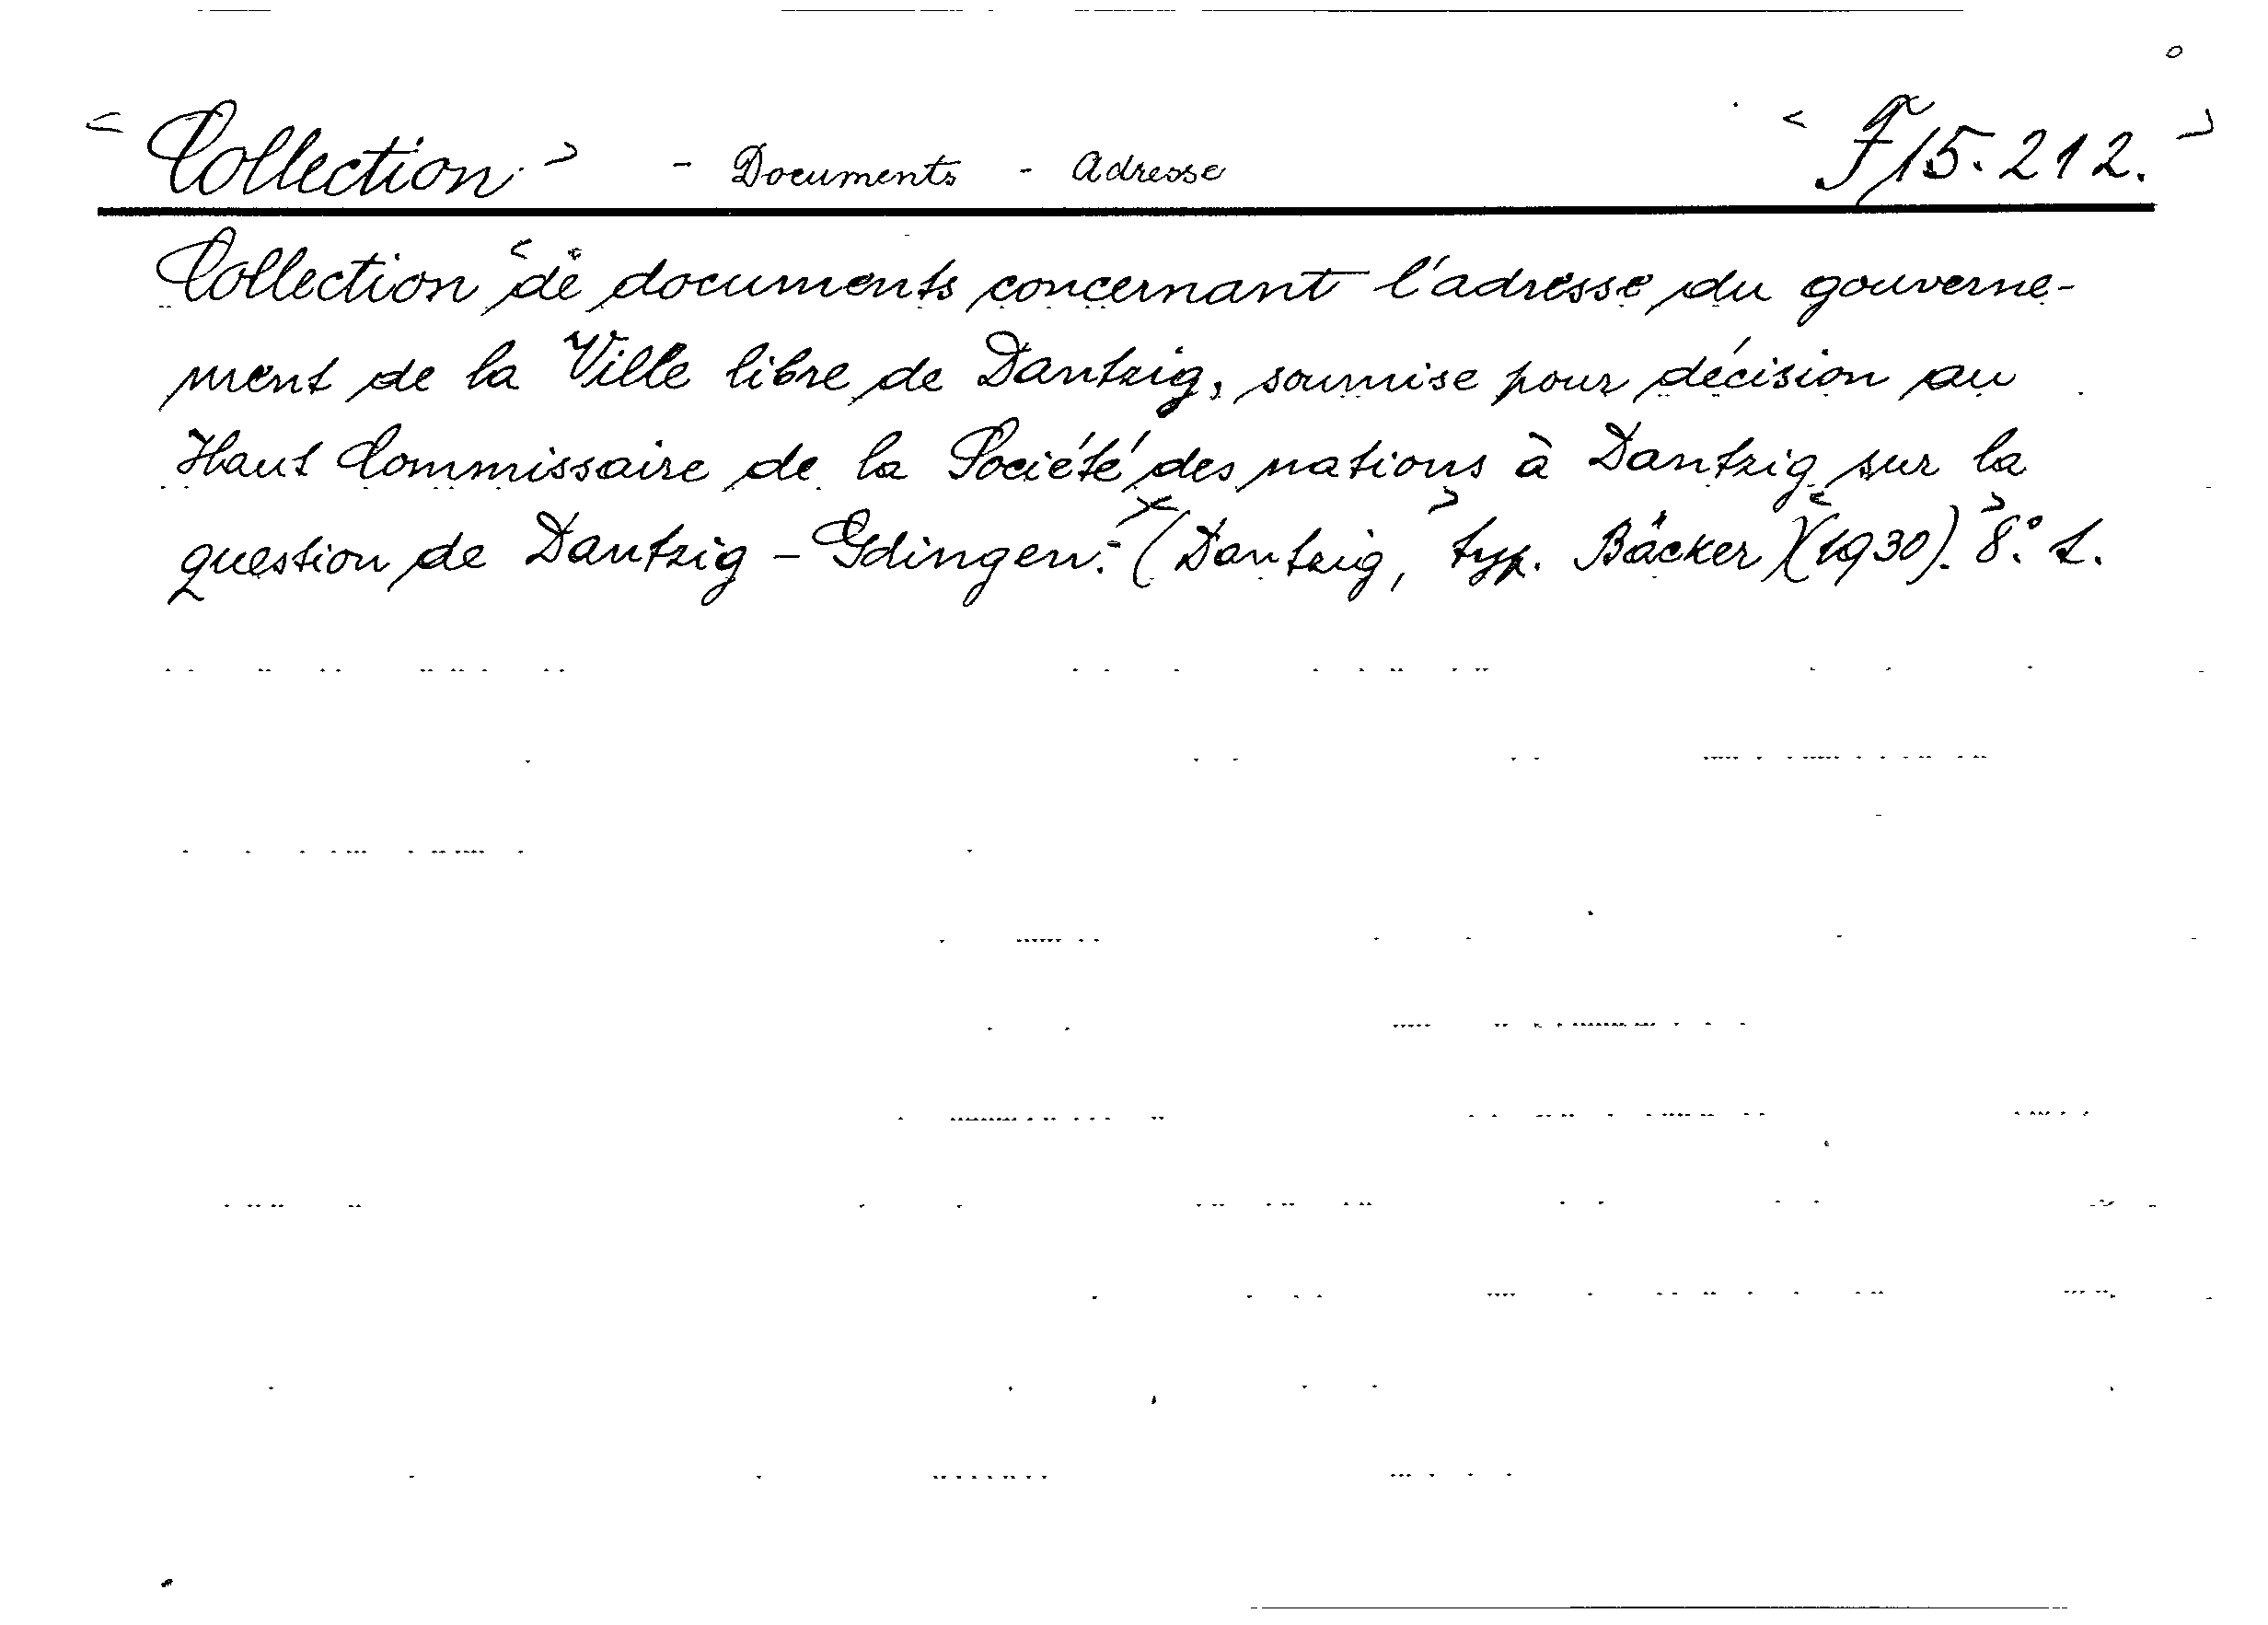 < Collection. > - Documents - Adresse < F 15.212. >
Collection de documents concernant l'adresse du gouverne-
ment de la Ville libre de Dantzig, soumise pour décision au
Haut Commissaire de la Société des nations à Dantzig sur la
question de Dantzig - Gdingen.- (Dantzig, typ. Bäcker) (1930). 8.° 1.